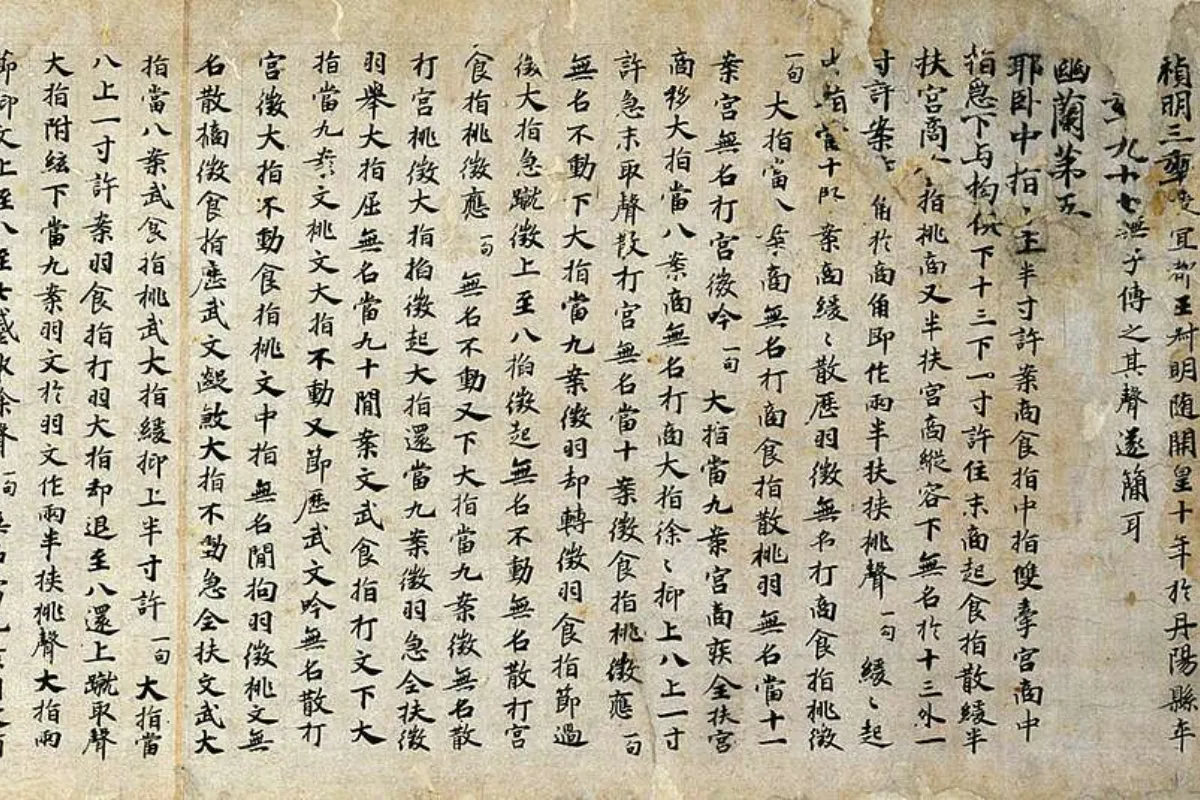 禎明三年 宜都王叔明隨開皇十年於丹陽縣卒
九十七無子傳之其聲遂簡耳
幽蘭第五
耶卧中指〻半寸許案商食指中指雙牽宮商中
指急下与拘俱下十三下一寸許住末商起食指散緩半
扶宮商 指挑商又半扶宮商縱容下無名於十三外一
寸許案 角於商角即作兩半扶挾挑聲一句 緩〻起
當十 案商緩〻散歷羽徵無名打商食指挑徵
一句 大指當八案商無名打商食指散挑羽無名當十一
案宮無名打宮徵吟一句 大指當九案宮商疾全扶宮
商移大指當八案商無名打商大指徐〻抑上八上一寸
許急末取聲散打宮無名當十案徵食指挑徵應一句
無名不動下大指當九案徵羽却轉徵羽食指節過
徵大指急蹴徵上至八掐徵起無名不動無名散打宮
食指挑徵應一句 無名不動又下大指當九案徵無名散
打宮挑徵大指掐徵起大指還當九案徵羽急全扶徵
羽舉大指屈無名當九十間案文武食指打文下大
指當九案文挑文大指不動又節歷武文吟無名散打
宮徵大指不動食指挑文中指無名間拘羽徵挑文無
名散擿徵食指歷武文齪敒大指不動急全扶文武大
指當八案武食指挑武大指緩抑上半寸許一句 大指當
八上一寸許案羽食指打羽大指却退至八還上蹴取聲
大指附絃下當九案羽文於羽文作兩半挾挑聲大指兩
節抑文上至八至七